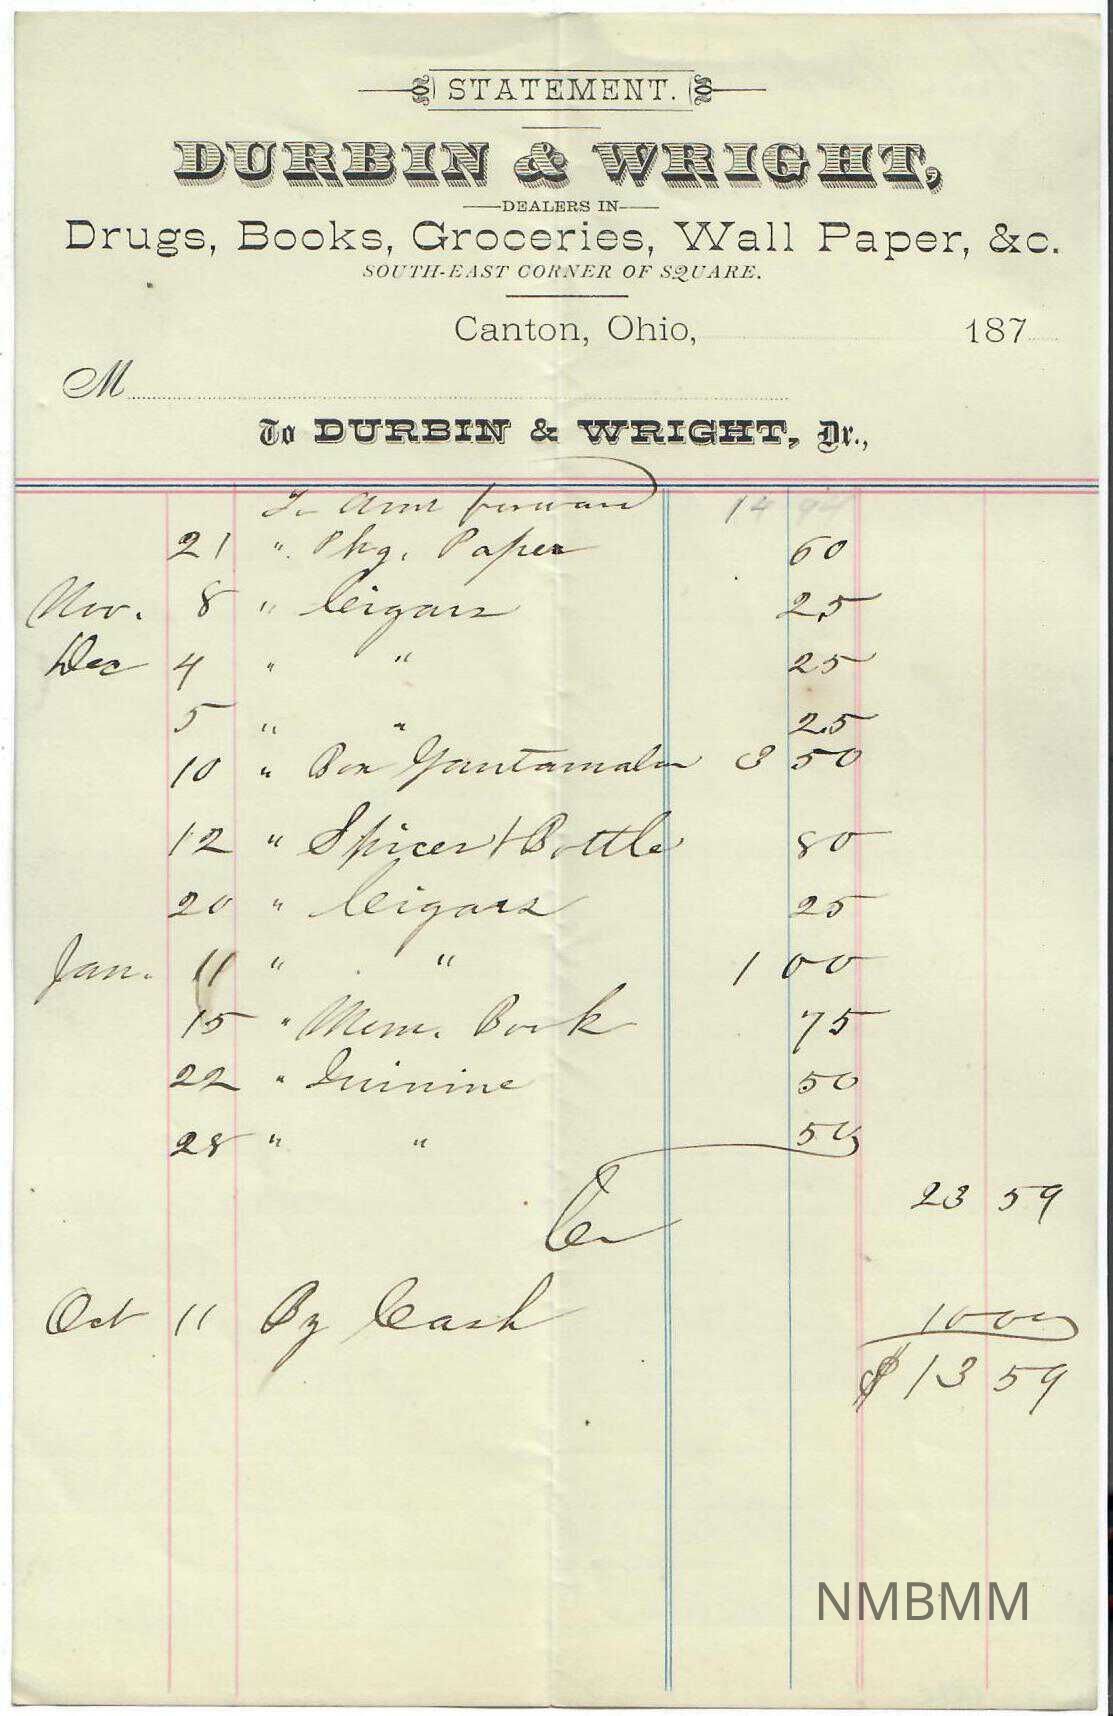 STATEMENT.
DURBIN & WRIGHT,
DEALERS IN
Drugs, Books, Groceries, Wall Paper, &c.
SOUTH-EAST CORNER OF SQUARE.
Canton, Ohio, 187
M
To DURBIN & WRIGHT, Dr.,
To Amt forward 14 94
21 " Pkg. Paper 60
Nov. 8 " Cigars 25
Dec 4 " " 25
5 " " 25
10 " Box 3 50
12 " Spices & Bottle 80
20 " Cigars 25
Jan. 11 " " 1 00
15 " Mem. Book 75
22 " Quinine 50
28 " " 50
23 59
Cr
Oct 11 By Cash 10 00
$ 13 59
NMBMM